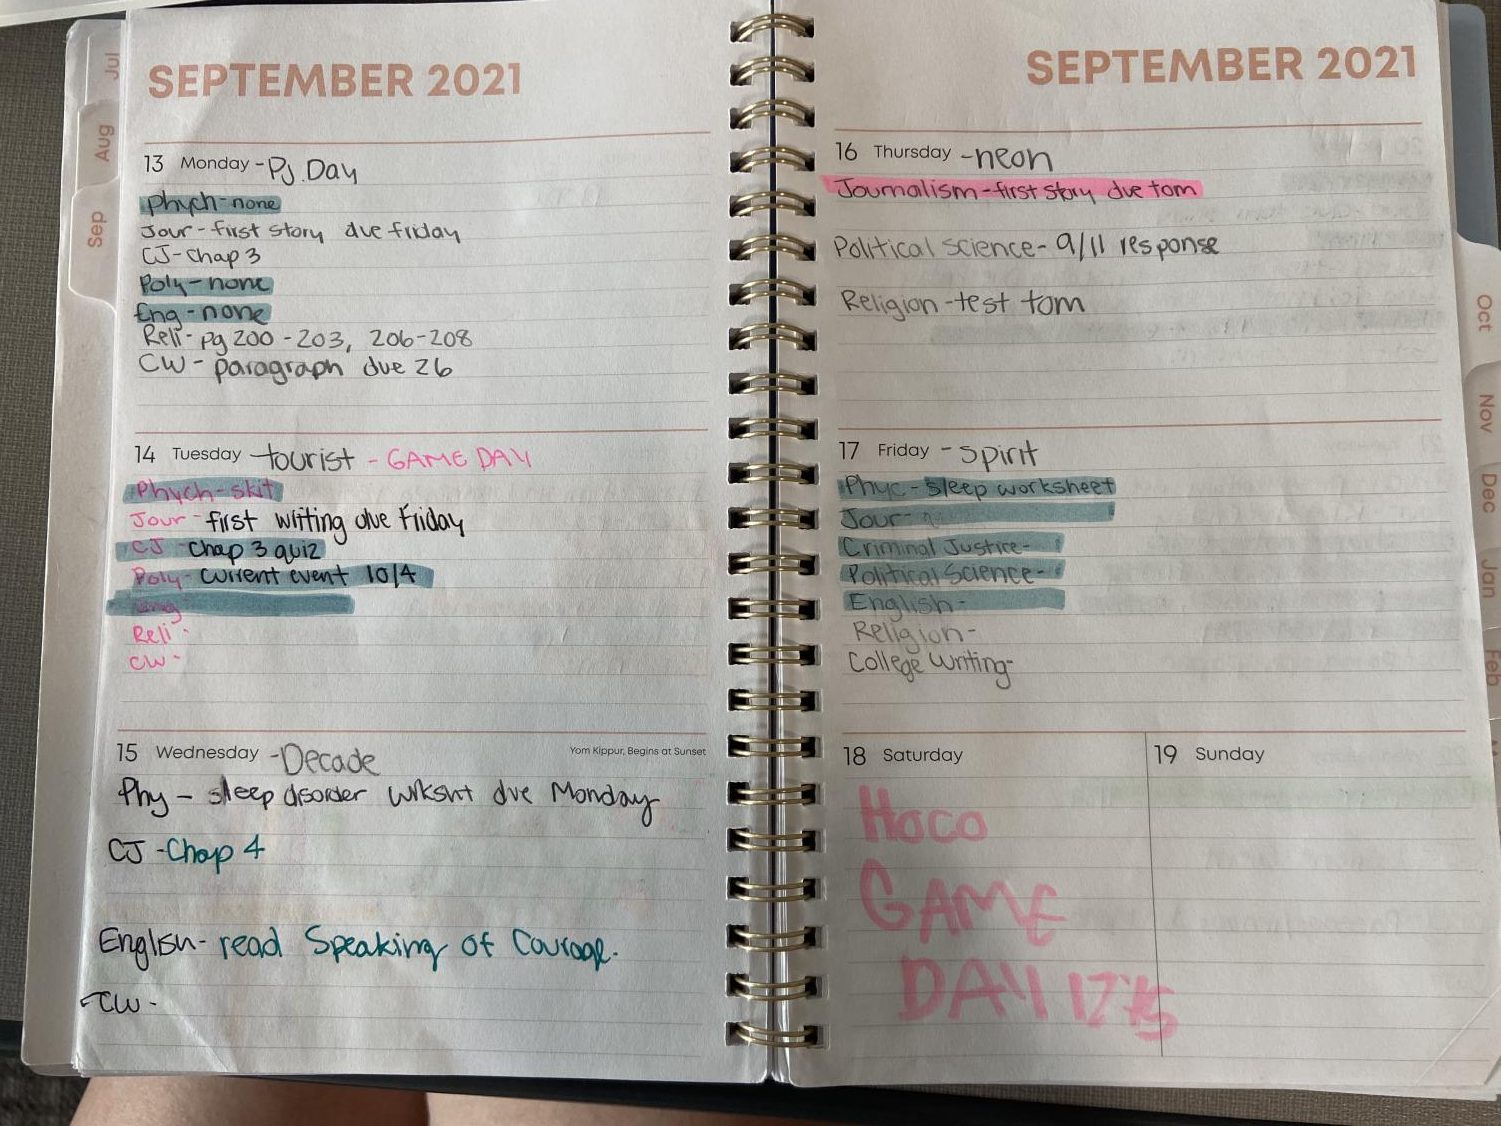 Jul
Aug
Sep
SEPTEMBER 2021
13 Monday - Pj Day
Phych - none
Jour - first story due friday
CJ - Chap 3
Poly - none
Eng - none
Reli - pg 200 - 203, 206-208
CW - paragraph due 26
14 Tuesday - tourist - GAME DAY
Phych - skit
Jour - first writing due Friday
CJ - Chap 3 quiz
Poly - current event 10/4
eng
Reli -
CW -
15 Wednesday - Decade
Yom Kippur, Begins at Sunset
Phy - sleep disorder wrksht due Monday
CJ - Chap 4
English - read Speaking of Courage.
CW -
SEPTEMBER 2021
16 Thursday - neon
Journalism - first story due tom
Political Science - 9/11 response
Religion - test tom
17 Friday - Spirit
Phyc - sleep worksheet
Jour -
Criminal Justice -
Political Science -
English -
Religion -
College Writing -
18 Saturday
Hoco
GAME
DAY
19 Sunday
Oct
Nov
Dec
Jan
Feb